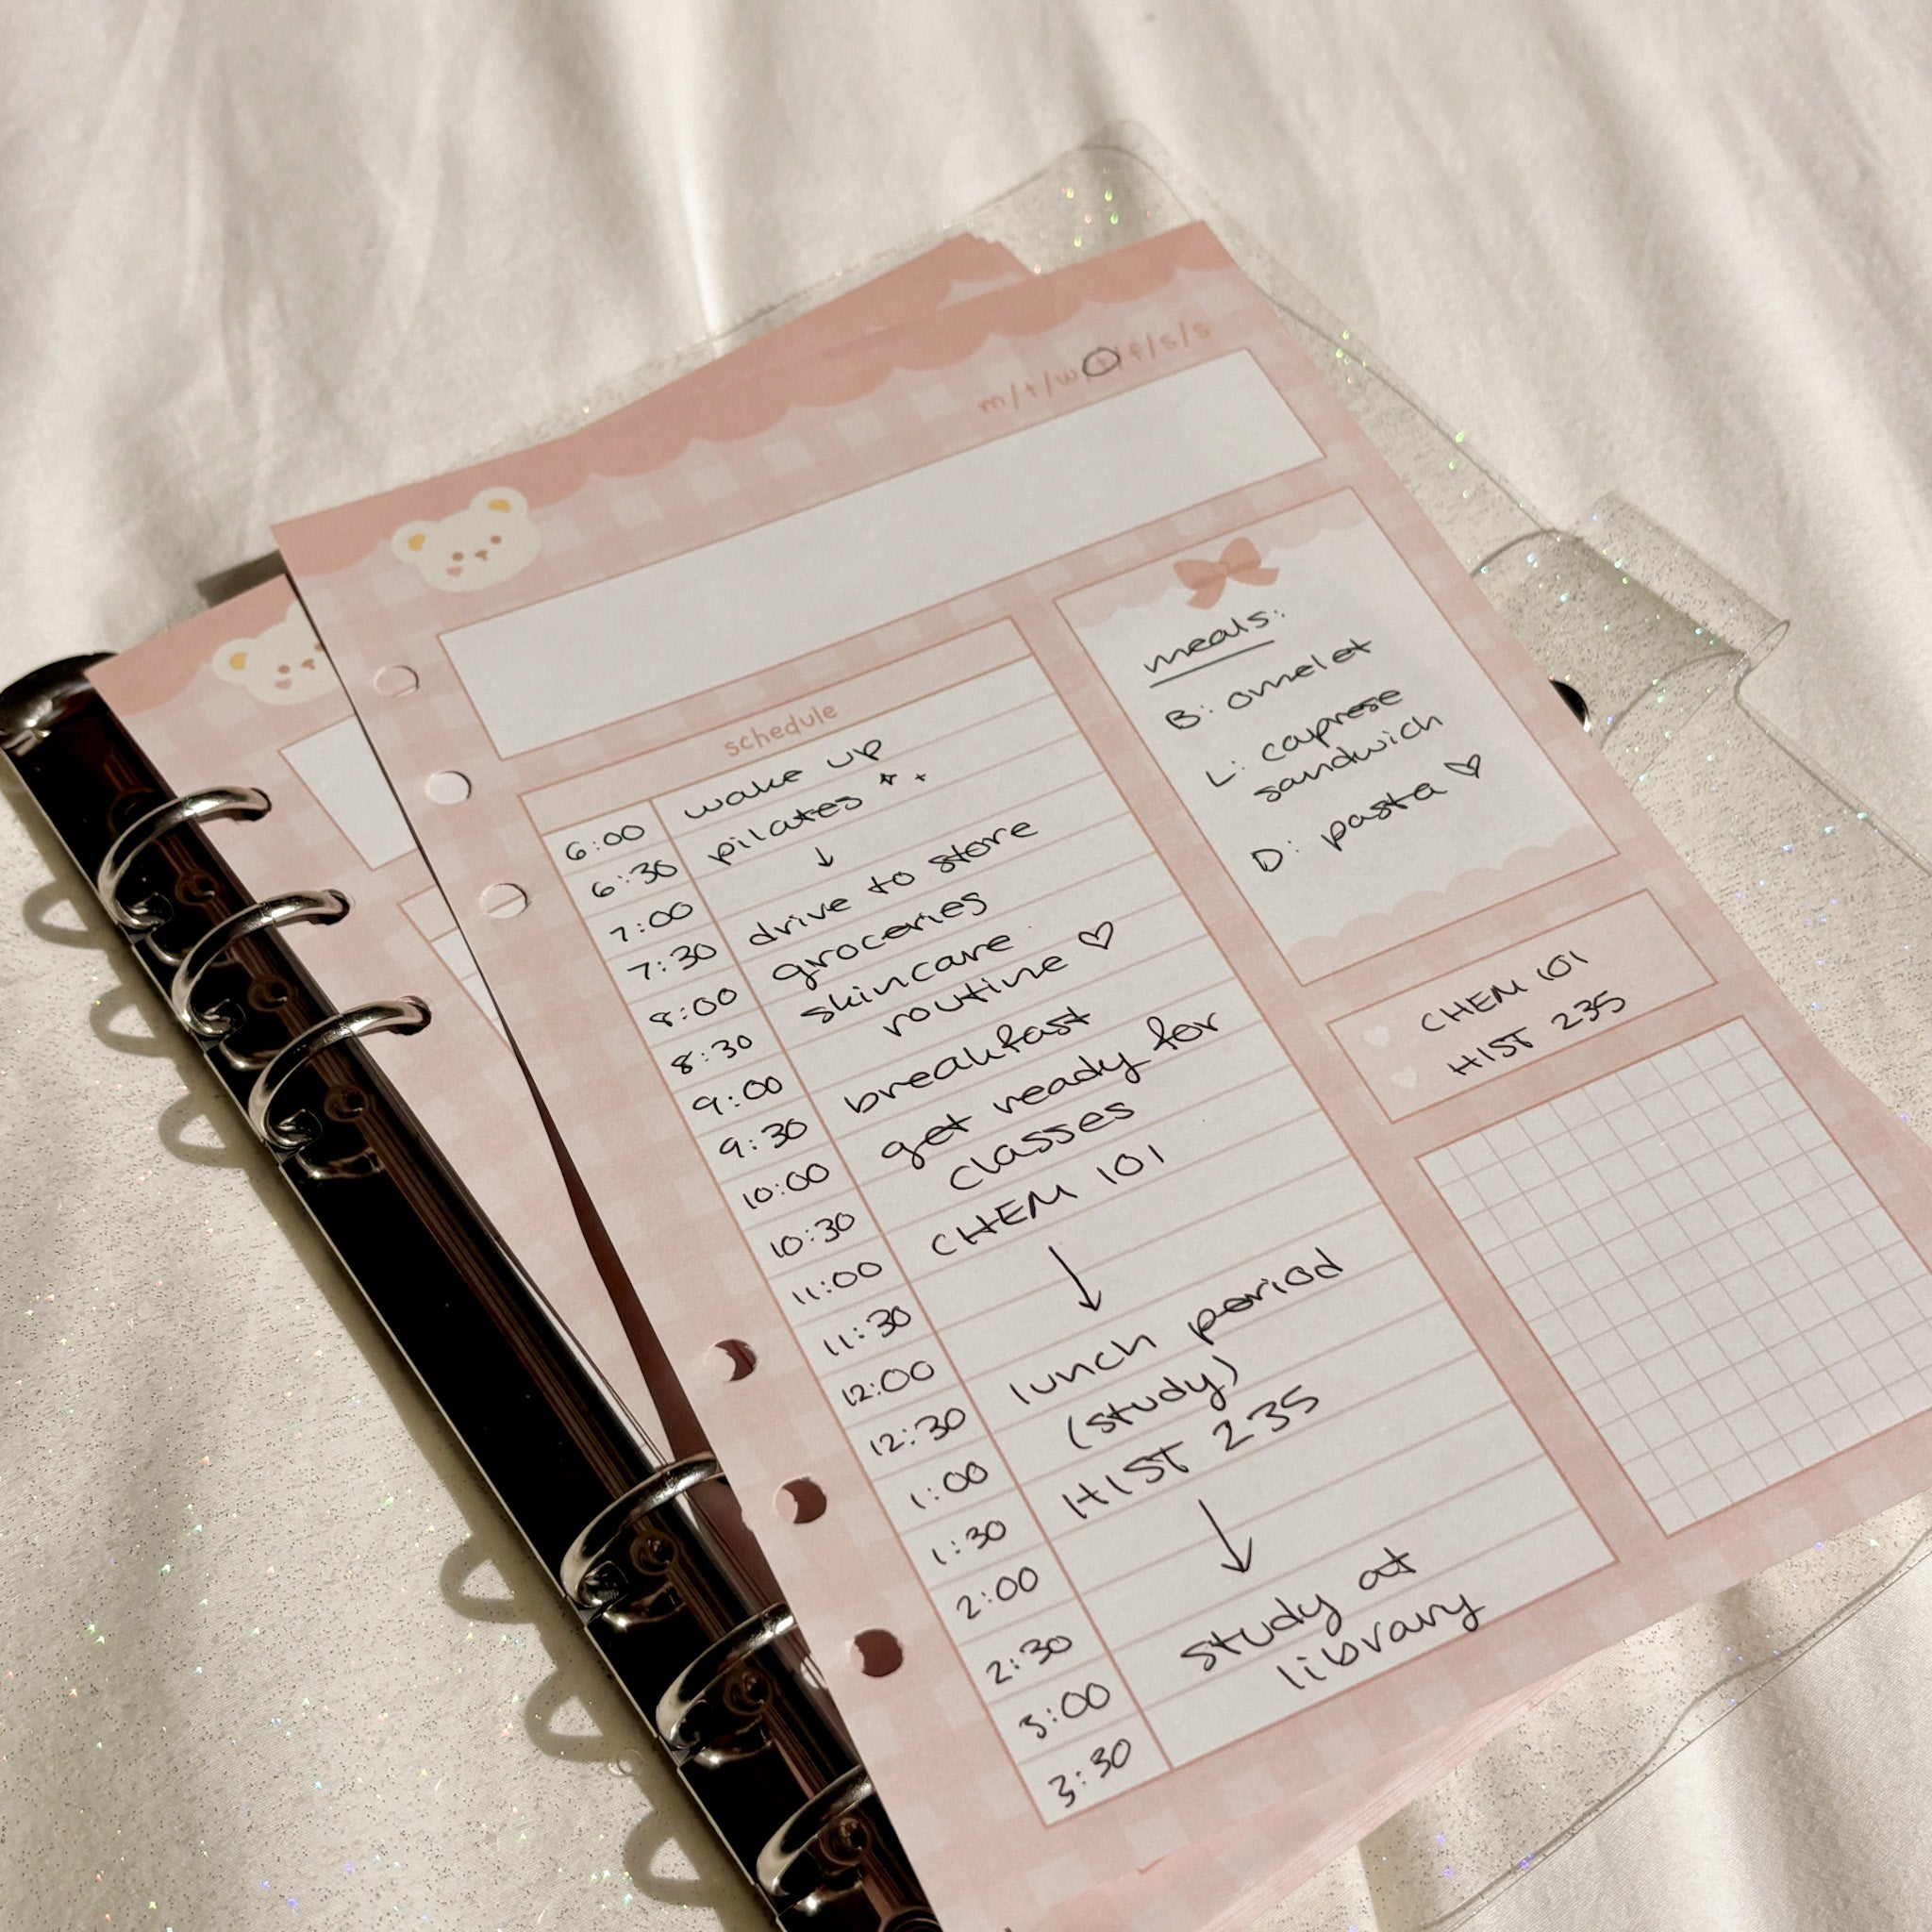 m/t/w/t/f/s/s
schedule
6:00 wake up
6:30 pilates
7:00 ↓
7:30 drive to store
8:00 groceries
8:30 skincare
9:00 routine ♡
9:30 breakfast
10:00 get ready for
10:30 classes
11:00 CHEM 101
11:30 ↓
12:00
12:30 lunch period
1:00 (study)
1:30 HIST 235
2:00 ↓
2:30
3:00 study at
3:30 library
meals:
B: omelet
L: caprese
sandwich
D: pasta ♡
CHEM 101
HIST 235